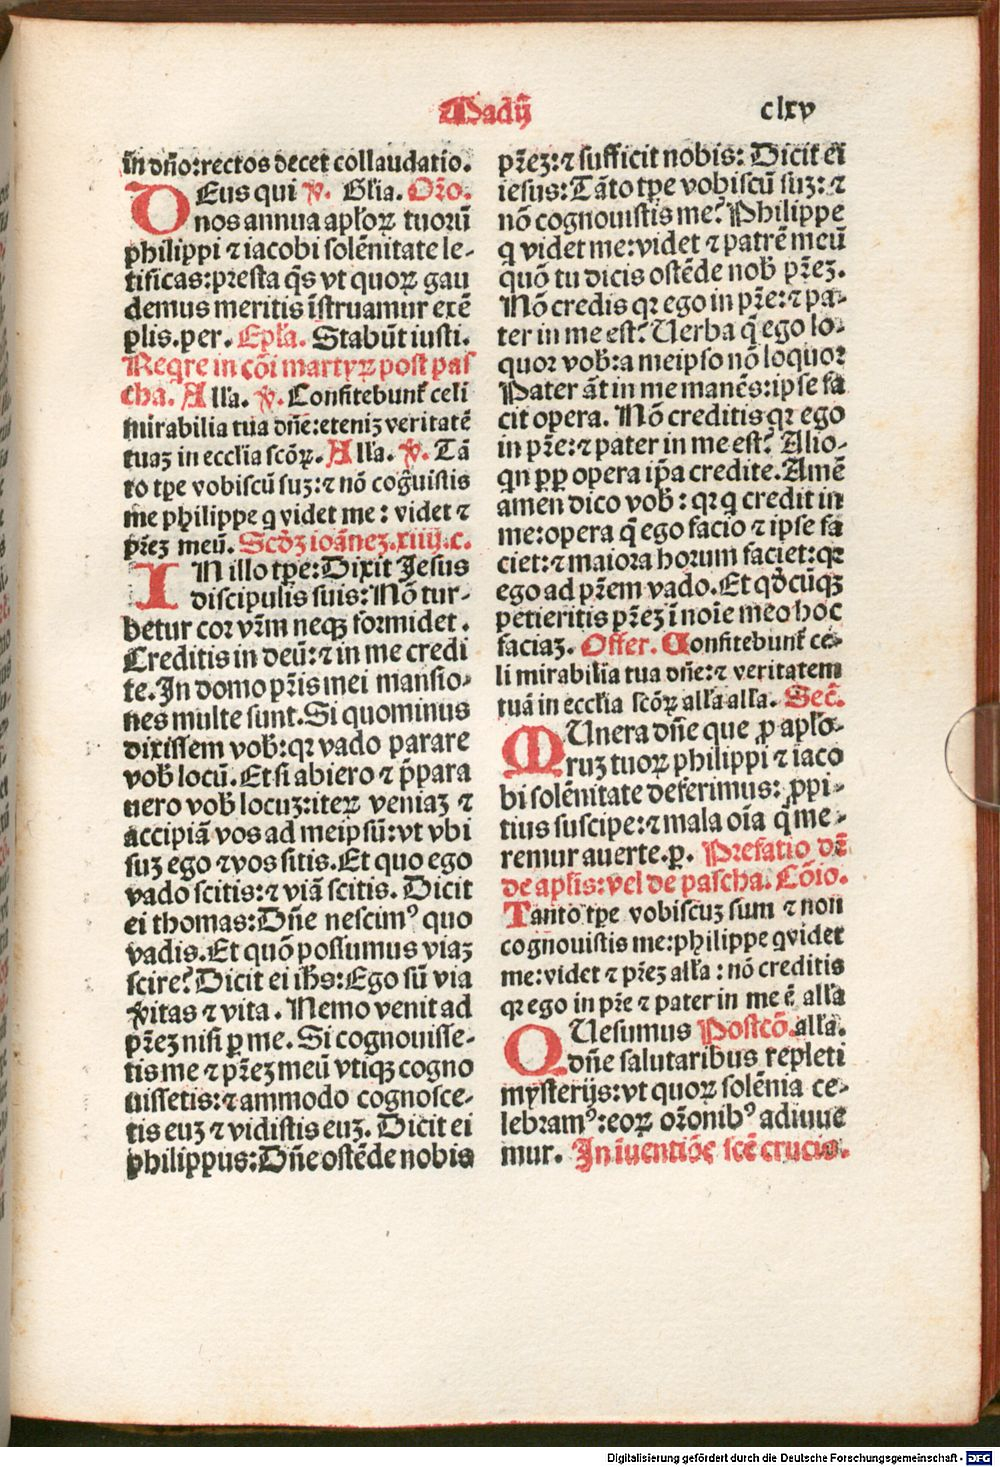 Madij̄ clxv
in dn̄o:rectos decet collaudatio.
DEus qui v̷. Gl̄ia. Or̄o.
nos annua apl̄oꝝ tuorū
philippi ⁊ iacobi solēnitate le-
tificas:presta q̄s vt quoꝝ gau
demus meritis īstruamur exē
plis.per. Epl̄a. Stabūt iusti.
Reqre in cōi martyꝝ post pas
cha. All'a. v̷. Confitebunt̄ celi
mirabilia tua dn̄e:eteniꝫ veritatē
tuaꝫ in eccl̄ia scōꝝ. All'a. v̷. Tā
to tꝑe vobiscū suꝫ:⁊ nō cogͦuistis
me philippe q videt me: videt ⁊
pr̄eꝫ meū. Scd̄ꝫ ioān̄eꝫ.xiiij.c.
IN illo tꝑe:Dixit Jesus
discipulis suis:Nō tur-
betur cor vr̄m neqꝫ formidet.
Creditis in deū:⁊ in me credi
te.In domo pr̄is mei mansio-
nes multe sunt.Si quominus
dixissem vob̄:qꝛ vado parare
vob̄ locū.Et si abiero ⁊ p̄para
uero vob̄ locuꝫ:iteꝝ veniaꝫ ⁊
accipiā vos ad meipsū:vt vbi
suꝫ ego ⁊vos sitis.Et quo ego
vado scitis:⁊ viā scitis. Dicit
ei thomas:Dn̄e nescimꝰ quo
vadis.Et quō possumus viaꝫ
scire?Dicit ei ih̄s:Ego sū via
v̷itas ⁊ vita. Nemo venit ad
pr̄eꝫ nisi ꝑ me. Si cognouisse-
tis me ⁊ pr̄eꝫ meū vtiqꝫ cogno
uissetis:⁊ ammodo cognosce-
tis euꝫ ⁊ vidistis euꝫ. Dicit ei
philippus:Dn̄e ostēde nobis
pr̄eꝫ:⁊ sufficit nobis: Dicit ei
iesus:Tāto tꝑe vobiscū suꝫ:⁊
nō cognouistis me? Philippe
q videt me:videt ⁊ patrē meū
quō tu dicis ostēde nob̄ pr̄eꝫ.
Nō credis qꝛ ego in pr̄e:⁊ pa-
ter in me est? Uerba q̄ ego lo-
quor vob̄:a meipso nō loquoꝛ
Pater āt in me manēs:ipse fa
cit opera. Nō creditis qꝛ ego
in pr̄e:⁊ pater in me est? Alio-
qn ꝓꝑ opera ip̄a credite.Amē
amen dico vob̄: qꝛ q credit in
me:opera q̄ ego facio ⁊ ipse fa
ciet:⁊ maiora horum faciet:qꝛ
ego ad pr̄em vado.Et qd̄cūqꝫ
petieritis pr̄eꝫ ī noīe meo hoc
faciaꝫ. Offer. Confitebunt̄ ce-
li mirabilia tua dn̄e:⁊ veritatem
tuā in eccl̄ia scōꝝ all'a all'a. Sec̄.
MUnera dn̄e que ꝓ apl̄o-
ruꝫ tuoꝝ philippi ⁊ iaco
bi solēnitate deferimus: ꝓpi-
tius suscipe:⁊ mala oīa q̄ me-
remur auerte.p. Prefatio dr̄
de apl̄is:vel de pascha. Cōio.
Tanto tꝑe vobiscuꝫ sum ⁊ non
cognouistis me:philippe qvidet
me:videt ⁊ pr̄eꝫ all'a: nō creditis
qꝛ ego in pr̄e ⁊ pater in me ē all'a
QUesumus Postcō.all'a.
dn̄e salutaribus repleti
mysterijs:vt quoꝝ solēnia ce-
lebramꝰ:eoꝝ or̄onibꝰ adiuue
mur. In īuentiōe scē crucis.
Digitalisierung gefördert durch die Deutsche Forschungsgemeinschaft - DFG